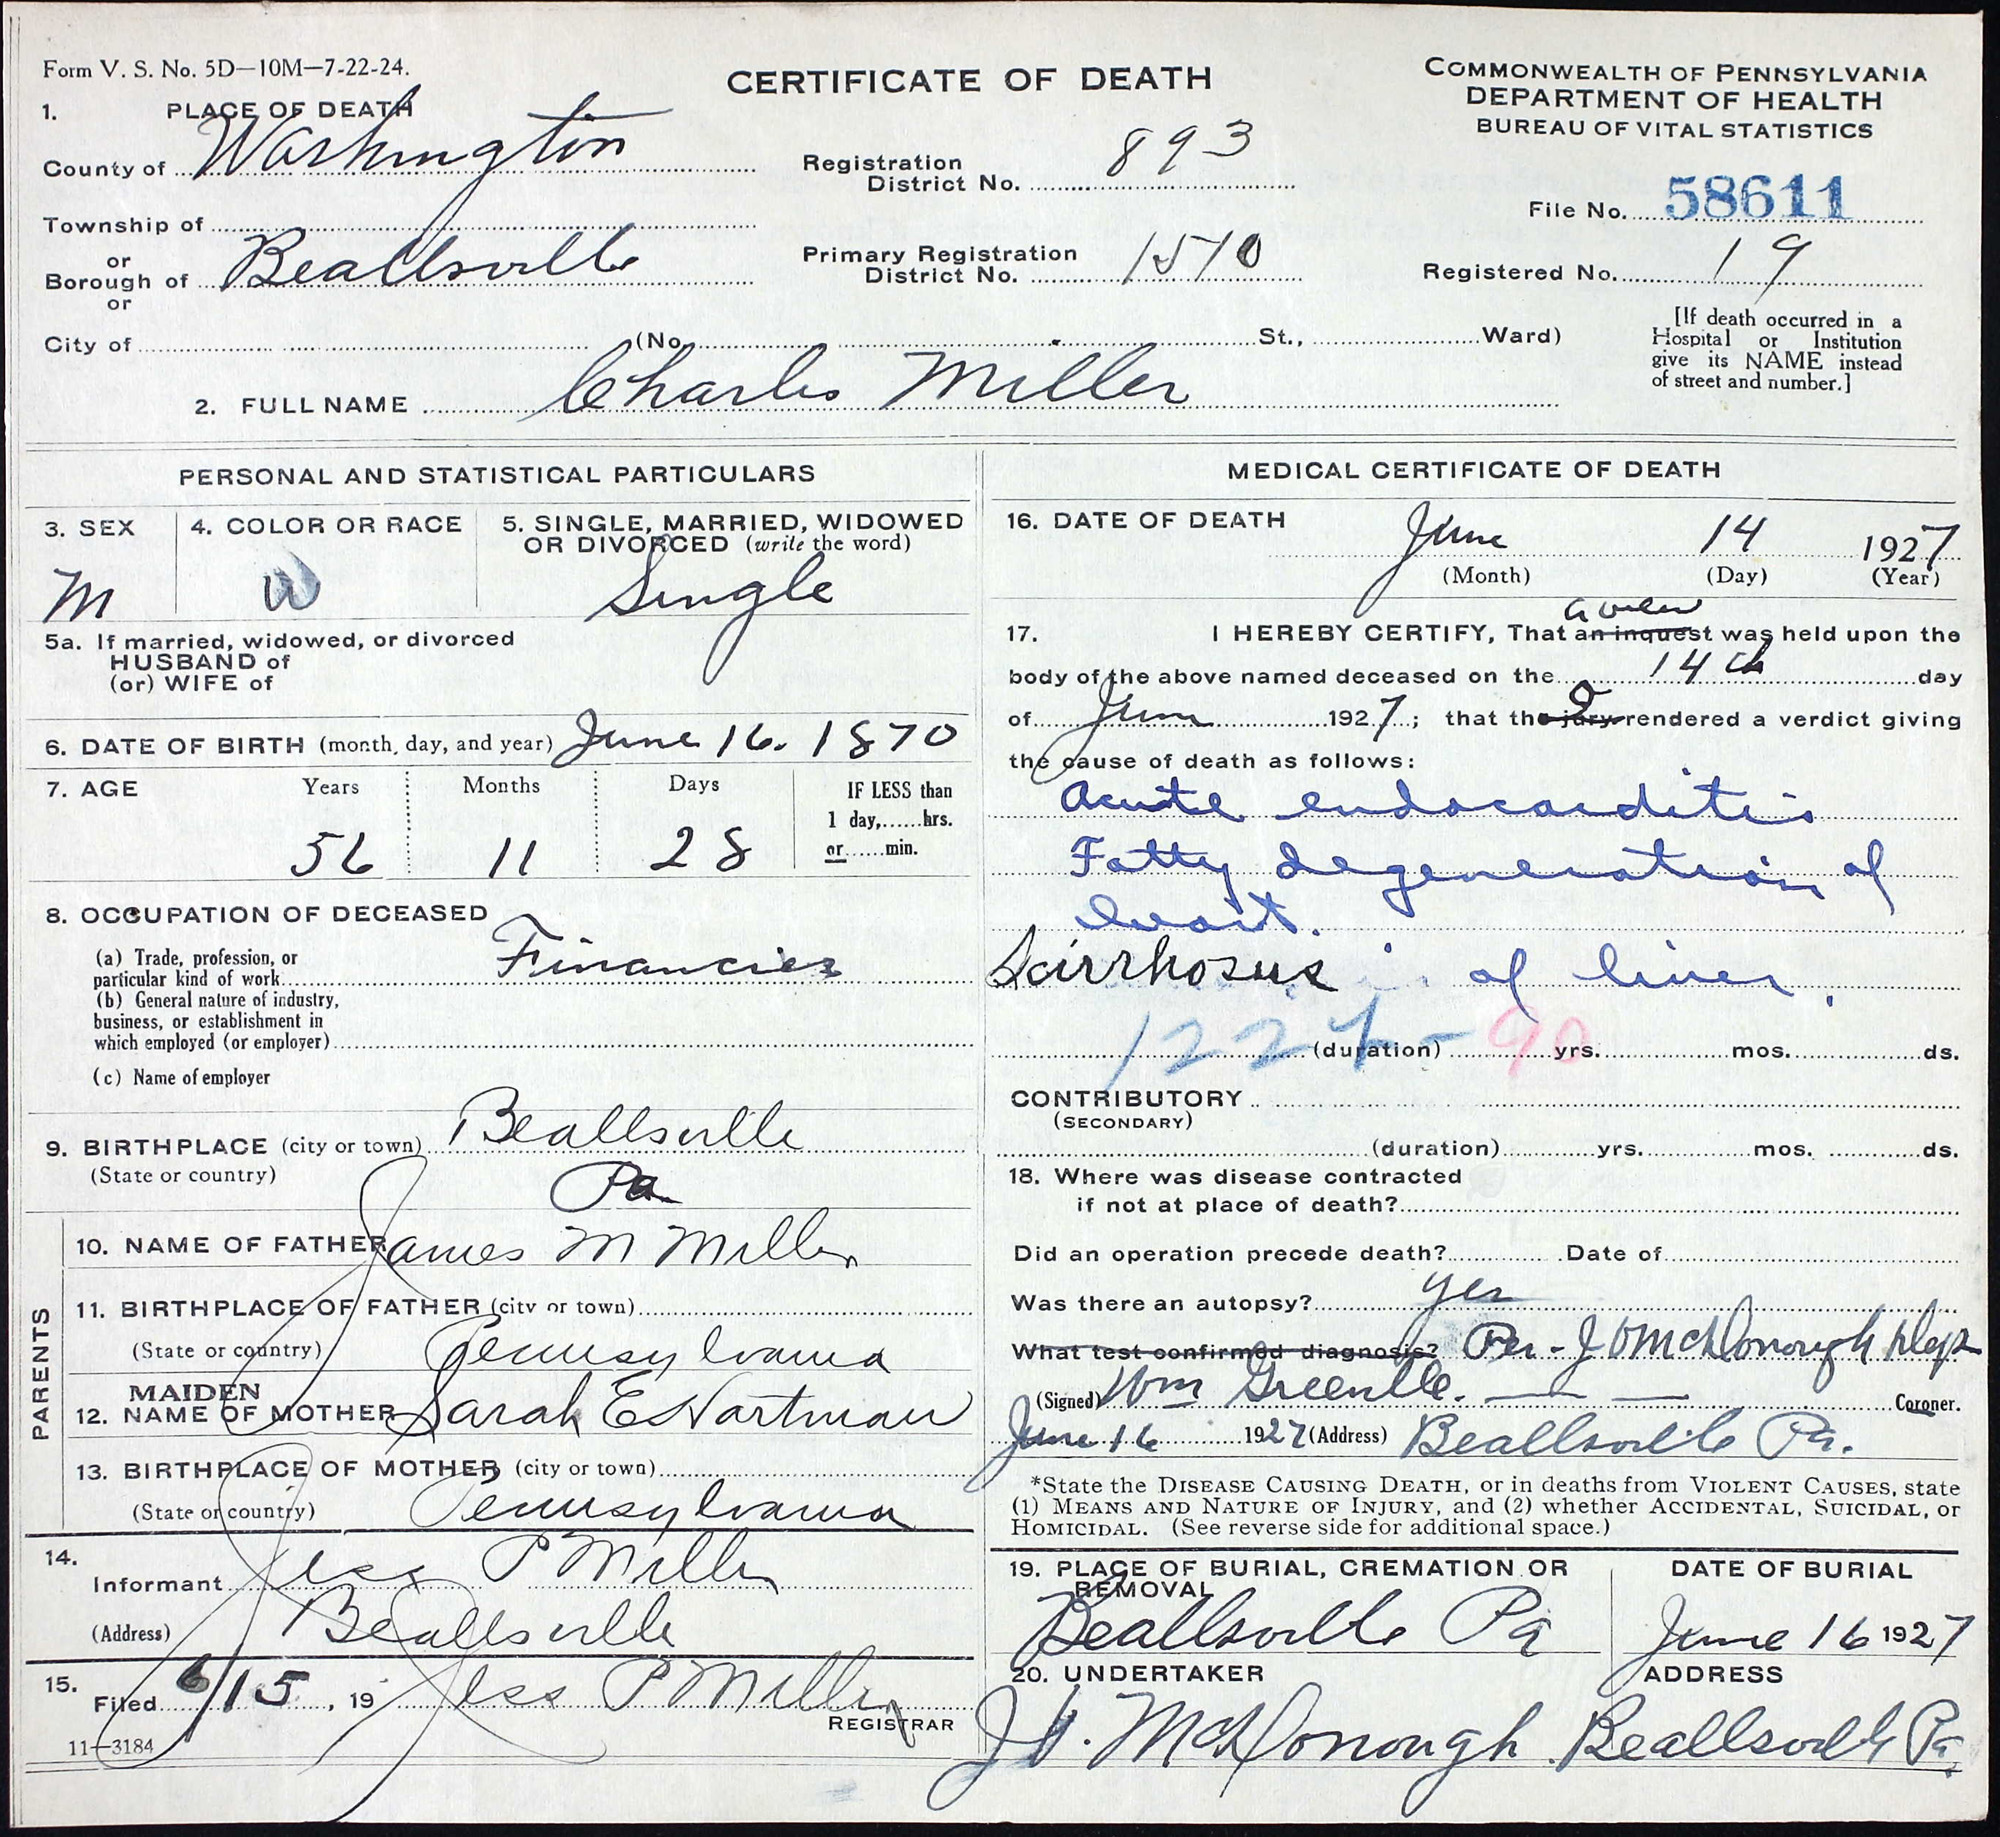 Form V. S. No. 5D—10M—7-22-24.
CERTIFICATE OF DEATH
COMMONWEALTH OF PENNSYLVANIA
DEPARTMENT OF HEALTH
BUREAU OF VITAL STATISTICS
1. PLACE OF DEATH
County of Washington
Registration District No. 893
File No. 58611
Township of
or
Borough of Beallsville
or
Primary Registration District No. 1510
Registered No. 19
City of (No. St., Ward)
[If death occurred in a
Hospital or Institution
give its NAME instead
of street and number.]
2. FULL NAME Charles Miller
PERSONAL AND STATISTICAL PARTICULARS
3. SEX
M
4. COLOR OR RACE
W
5. SINGLE, MARRIED, WIDOWED
OR DIVORCED (write the word)
Single
5a. If married, widowed, or divorced
HUSBAND of
(or) WIFE of
6. DATE OF BIRTH (month, day, and year) June 16. 1870
7. AGE Years Months Days IF LESS than
1 day,......hrs.
or......min.
56 11 28
8. OCCUPATION OF DECEASED
(a) Trade, profession, or
particular kind of work Financier
(b) General nature of industry,
business, or establishment in
which employed (or employer)
(c) Name of employer
9. BIRTHPLACE (city or town) Beallsville
(State or country) Pa
PARENTS
10. NAME OF FATHER James M Miller
11. BIRTHPLACE OF FATHER (city or town)
(State or country) Pennsylvania
12. MAIDEN NAME OF MOTHER Sarah E Hartman
13. BIRTHPLACE OF MOTHER (city or town)
(State or country) Pennsylvania
14.
Informant Jess P Miller
(Address) Beallsville
15.
Filed 6/15, 19 Jess P Miller
REGISTRAR
11—3184
MEDICAL CERTIFICATE OF DEATH
16. DATE OF DEATH June 14 1927
(Month) (Day) (Year)
17. I HEREBY CERTIFY, That an inquest was held upon the
body of the above named deceased on the 14th day
of June 1927; that the jury rendered a verdict giving
the cause of death as follows:
Acute endocarditis
Fatty degeneration of
heart.
Scirrhosus of liver.
122 90
(duration) yrs. mos. ds.
CONTRIBUTORY
(SECONDARY)
(duration) yrs. mos. ds.
18. Where was disease contracted
if not at place of death?
Did an operation precede death? Date of
Was there an autopsy? yes
What test confirmed diagnosis? Per - J H McDonough Dep
(Signed) Wm Greenlee. Coroner.
June 16 1927 (Address) Beallsville Pa.
*State the DISEASE CAUSING DEATH, or in deaths from VIOLENT CAUSES, state
(1) MEANS AND NATURE OF INJURY, and (2) whether ACCIDENTAL, SUICIDAL, or
HOMICIDAL. (See reverse side for additional space.)
19. PLACE OF BURIAL, CREMATION OR
REMOVAL
Beallsville Pa
DATE OF BURIAL
June 16 1927
20. UNDERTAKER
J H. McDonough
ADDRESS
Beallsville Pa.